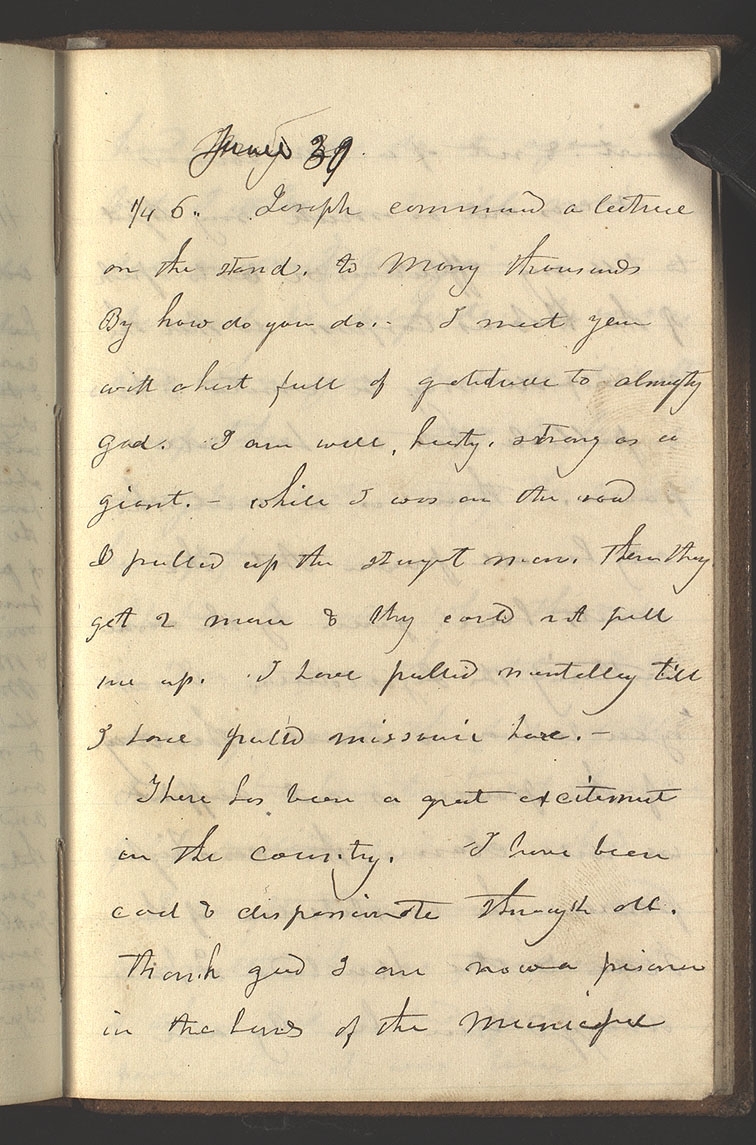 June 30
1/4 6.. Joseph commencd a lecture
on the stand. to many thousands
By how do you do.- I meet you
with a hert full of gratitude to almighty
god. I am well, hearty. strong as a
giant. - while I was on the road
I pulled up the strongest man. Then they
got 2 men & they could not pull
me up. I have pulled mentalley till
I have pulled missouri here. -
There has been a great excitement
in the country. I have been
cool & dispassionate through all.
Thank god I am now a prisoner
in the hands of the Municipal